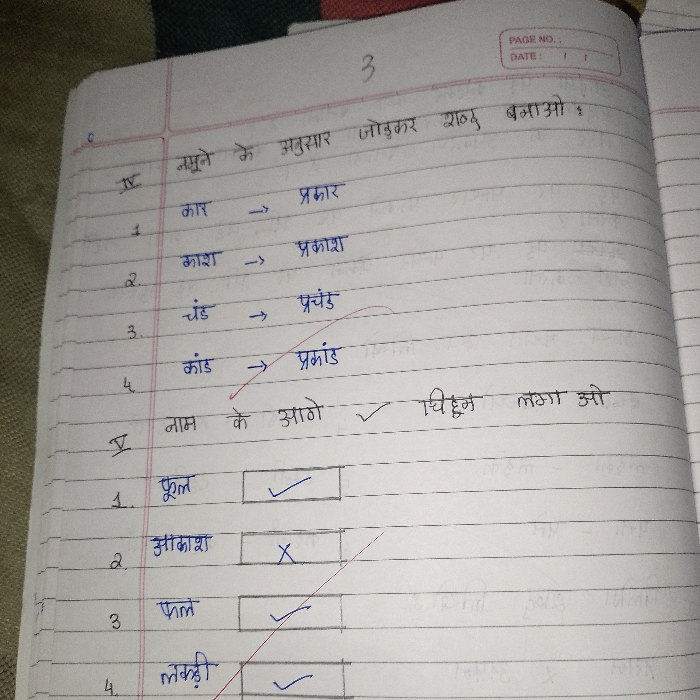 3
PAGE NO. :
DATE : / /
IV नमूने के अनुसार जोड़कर शब्द बनाओ :
1 कार → प्रकार
2. काश → प्रकाश
3. चंड → प्रचंड
4 कांड → प्रकांड
V नाम के आगे ✓ चिह्न लगा ओ
1. फूल ✓
2. आकाश X
3 फल ✓
4. लकड़ी ✓